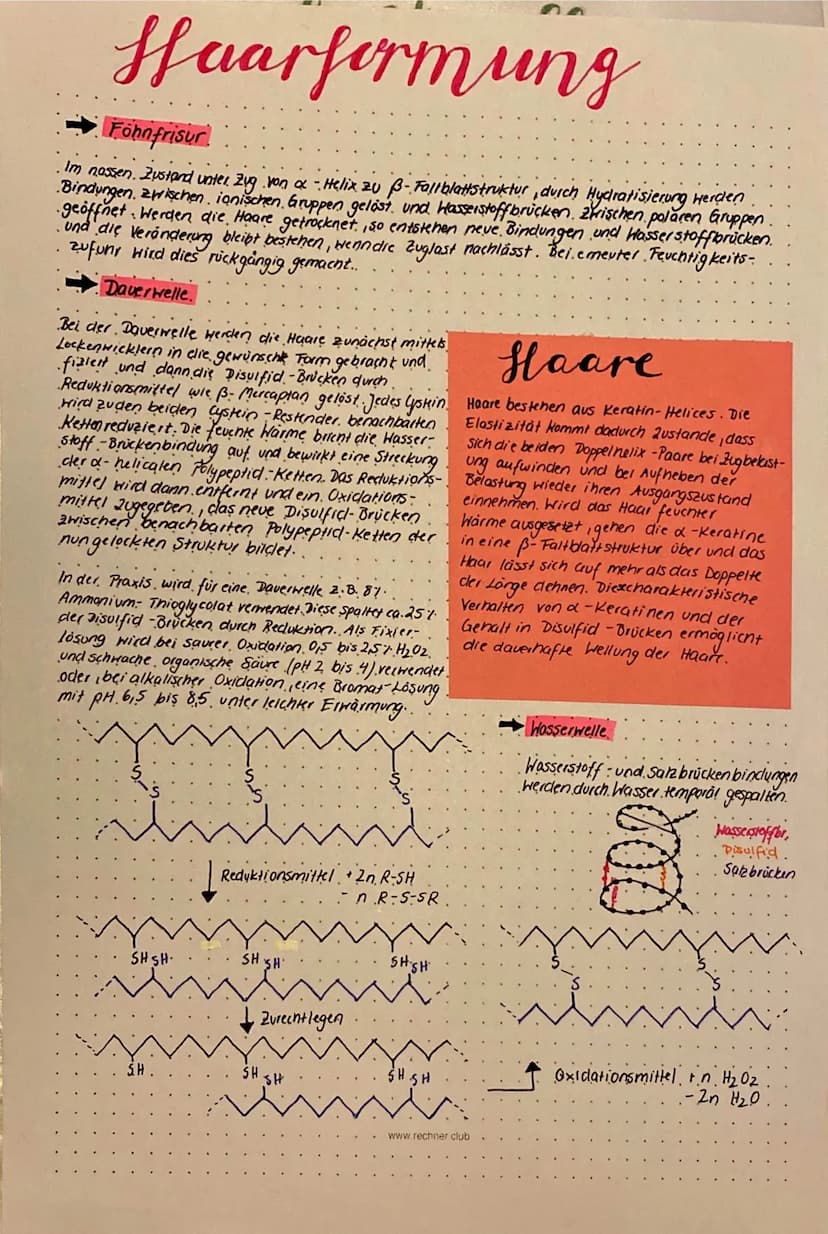 Haarformung
→ Föhnfrisur
Im nassen Zustand unter Zug von α-Helix zu β-Faltblattstruktur, durch Hydratisierung werden
Bindungen zwischen ionischen Gruppen gelöst und Wasserstoffbrücken zwischen polaren Gruppen
geöffnet. Werden die Haare getrocknet, so entstehen neue Bindungen und Wasserstoffbrücken
und die Veränderung bleibt bestehen, wenn die Zuglast nachlässt. Bei erneuter Feuchtigkeits-
zufuhr wird dies rückgängig gemacht.
→ Dauerwelle
Bei der Dauerwelle werden die Haare zunächst mittels
Lockenwicklern in die gewünscht Form gebracht und
fixiert und dann die Disulfid-Brücken durch
Reduktionsmittel wie β-Mercaptan gelöst. Jedes Cystein
wird zu den beiden Cystein-Resten der benachbarten
Ketten reduziert. Die feuchte Wärme bricht die Wasser-
stoff-Brückenbindung auf und bewirkt eine Streckung
der α-helicalen Polypeptid-Ketten. Das Reduktions-
mittel wird dann entfernt und ein Oxidations-
mittel zugegeben, das neue Disulfid-Brücken
zwischen benachbarten Polypeptid-Ketten der
nun gelockten Struktur bildet.
In der Praxis wird für eine Dauerwelle z.B. 8%
Ammonium-Thioglycolat verwendet. Diese spaltet ca. 25%
der Disulfid-Brücken durch Reduktion. Als Fixier-
lösung wird bei saurer Oxidation 0,5 bis 2,5% H2O2
und schwache organische Säure (pH 2 bis 4) verwendet
oder, bei alkalischer Oxidation, eine Bromat-Lösung
mit pH 6,5 bis 8,5 unter leichter Erwärmung.
Haare
Haare bestehen aus Keratin-Helices. Die
Elastizität kommt dadurch zustande, dass
sich die beiden Doppelhelix-Paare bei Zugbelast-
ung aufwinden und bei Aufheben der
Belastung wieder ihren Ausgangszustand
einnehmen. Wird das Haar feuchter
Wärme ausgesetzt, gehen die α-Keratine
in eine β-Faltblattstruktur über und das
Haar lässt sich auf mehr als das Doppelte
der Länge dehnen. Dies charakteristische
Verhalten von α-Keratinen und der
Gehalt in Disulfid-Brücken ermöglicht
die dauerhafte Wellung der Haare.
→ Wasserwelle
Wasserstoff- und Salzbrückenbindungen
werden durch Wasser temporär gespalten.
Wasserstoffbr.
Disulfid
Salzbrücken
S S S
S S S
Reduktionsmittel + 2n R-SH
- n R-S-SR
SH SH SH SH SH SH
Zurechtlegen
SH SH SH SH SH
S S
S S
Oxidationsmittel + n H2O2
- 2n H2O
www.rechner.club